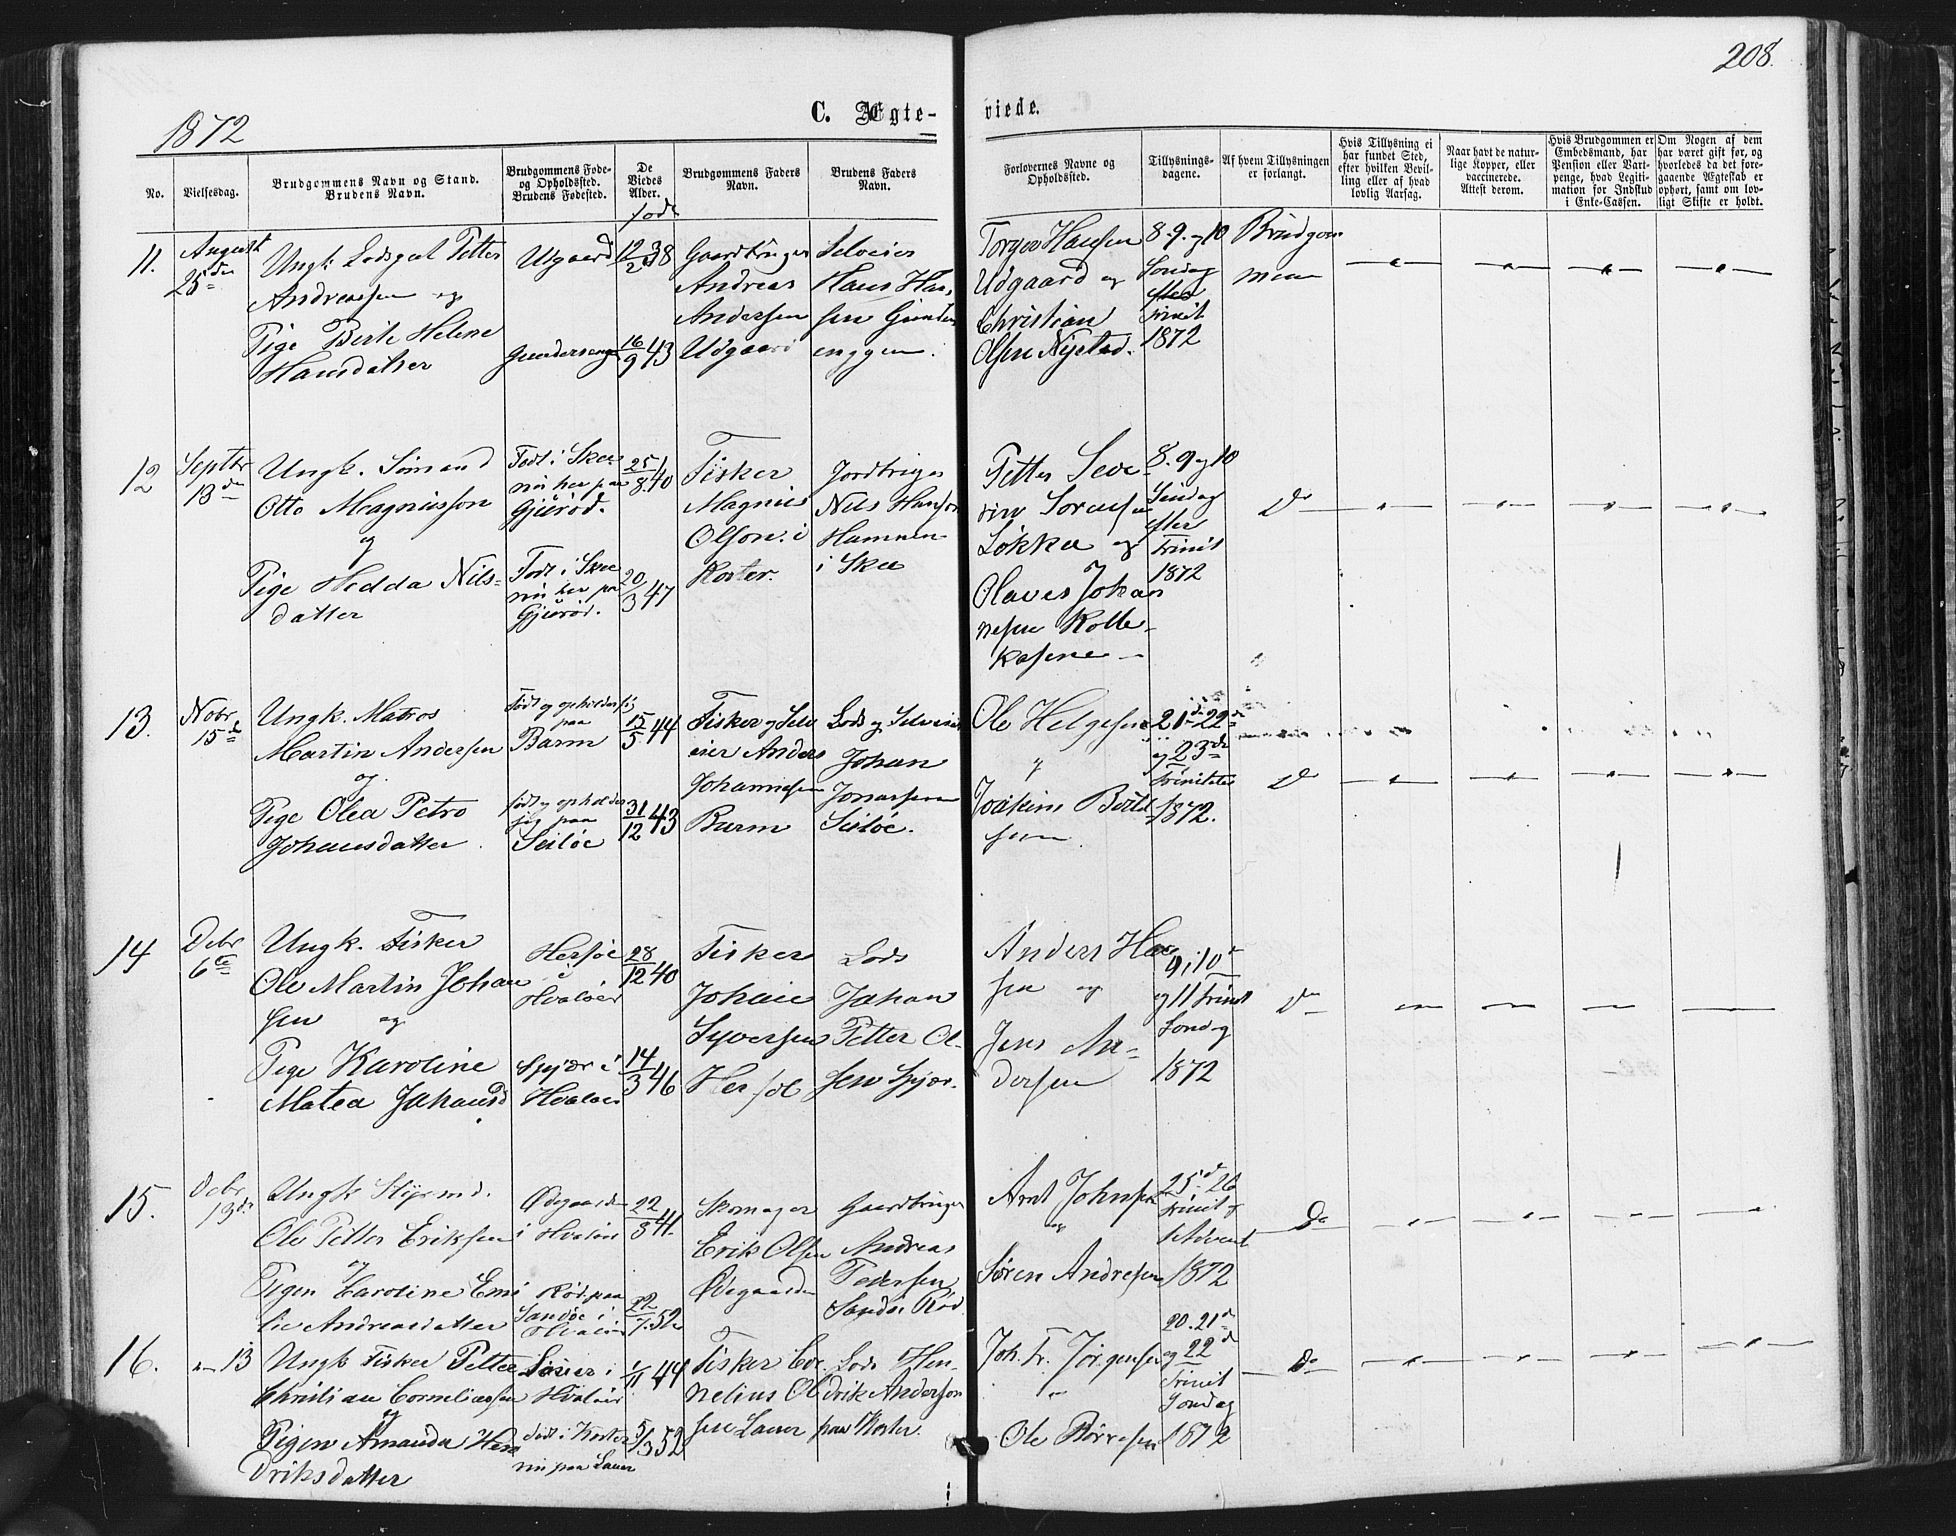 208.
1872
C. Ægte-
viede.
No.
Vielsesdag.
Brudgommens Navn og Stand.
Brudens Navn.
Brudgommens Føde-
og Opholdssted.
Brudens Fødested.
De
Viedes
Alder.
født
Brudgommens Faders
Navn.
Brudens Faders
Navn.
Forlovernes Navne og
Opholdssted.
Tillysnings-
dagene.
Af hvem Tillysningen
er forlangt.
Hvis Tillysning ei
har fundet Sted,
efter hvilken Bevil-
ling eller af hvad
lovlig Aarsag.
Naar havt de natur-
lige Kopper, eller
vaccinerede.
Attest derom.
Hvis Brudgommen er
Embedsmand, har
Pension eller Vart-
penge, hvad Legiti-
mation for Indskud
i Enke-Cassen.
Om Nogen af dem
har været gift før, og
hvorledes da det fore-
gaaende Ægteskab er
ophørt, samt om lov-
ligt Skifte er holdt.
11.
August
25de
Ungk. Lodsgut Petter
Andreassen og
Pige Berte Helene
Hansdatter
Utgaard
12/2 38
16/9 43
Gaardbruger
Andreas
Andersen
Udgaard
Selveier
Hans Han-
sen Gunders
enggen.
Torger Hansen
Udgaard og
Christian
Olsen Nystad.
8. 9. og 10
Søndag
efter
Trinit
1872
Brudgom
men
12
Septbr
13de
Ungk. Sømand
Otto Magnusson
og
Pige Hedda Nils-
datter
Født i Skee
nu her paa
Gjurød.
Født i Skee
nu her paa
Gjurød.
25/8 40
20/3 47
Fisker
Magnus
Olson i
Koster.
Jordbruger
Nils Hanson
Hamnen
i Skee
Petter Seve-
rin Sørensen
Løkka og
Olaves Johan
nesen Kolle-
kasene
8. 9 og 10
Søndag
efter
Trinit
1872
Do
13.
Nobr
15de
Ungk. Matros
Martin Andersen
og
Pige Olea Petro
Johansdatter
Født og opholder sig
paa
Barm
født og opholder
sig paa
Seiløe
15/5 44
31/12 43
Fisker og Selv
eier Anders
Johannesen
Barm
Lods og Selveier
Johan
Jonassen
Seiløe.
Ole Helgesen
og
Joakim Bertel
sen.
21de 22de
og 23de
Trinitatis
1872.
Do
14
Debr
6te
Ungk. Fisker
Ole Martin Johan
sen og
Pige Karoline
Matea Johansd
Herføe
i
Hvaløer
Spjær i
Hvaløer
28/12 40
14/3 46
Fisker
Johan
Syversen
Herføl
Lods
Johan
Petter Ol-
sen Spjær.
Anders Han
sen og
Jens An-
dersen
9, 10de
og 11 Trinit
Søndag
1872
Do
15.
Debr
13de
Ungk Styrmd.
Ole Petter Eriksen
og
Pigen Caroline Emi
lie Andreasdatter
Ødegaarden
i Hvaløer
Rød paa
Sandøe i
Hvaløer
22/3 41
22/7 52
Skomager
Erik Olsen
Ødegaarden
Gaardbruger
Andreas
Pedersen
Sandøe Rød
Arnt Johnsen
og
Søren Andresen
25de 26
Trinit og
1 Advent
1872
Do
16.
" 13
Ungk Fisker Petter
Christian Corneliussen
og
Pigen Amanda Hen
driksdatter
Lauer i
Hvaløer
født i Koster
nu paa Lauer
1/11 44
5/3 52
Fisker Cor
nelius Ol
sen Lauer
Lods Hen-
drik Anderson
paa Koster.
Joh. Fr. Jørgensen
Ole Børresen
20. 21de
og 22de
Trinit
Søndag
1872
Do